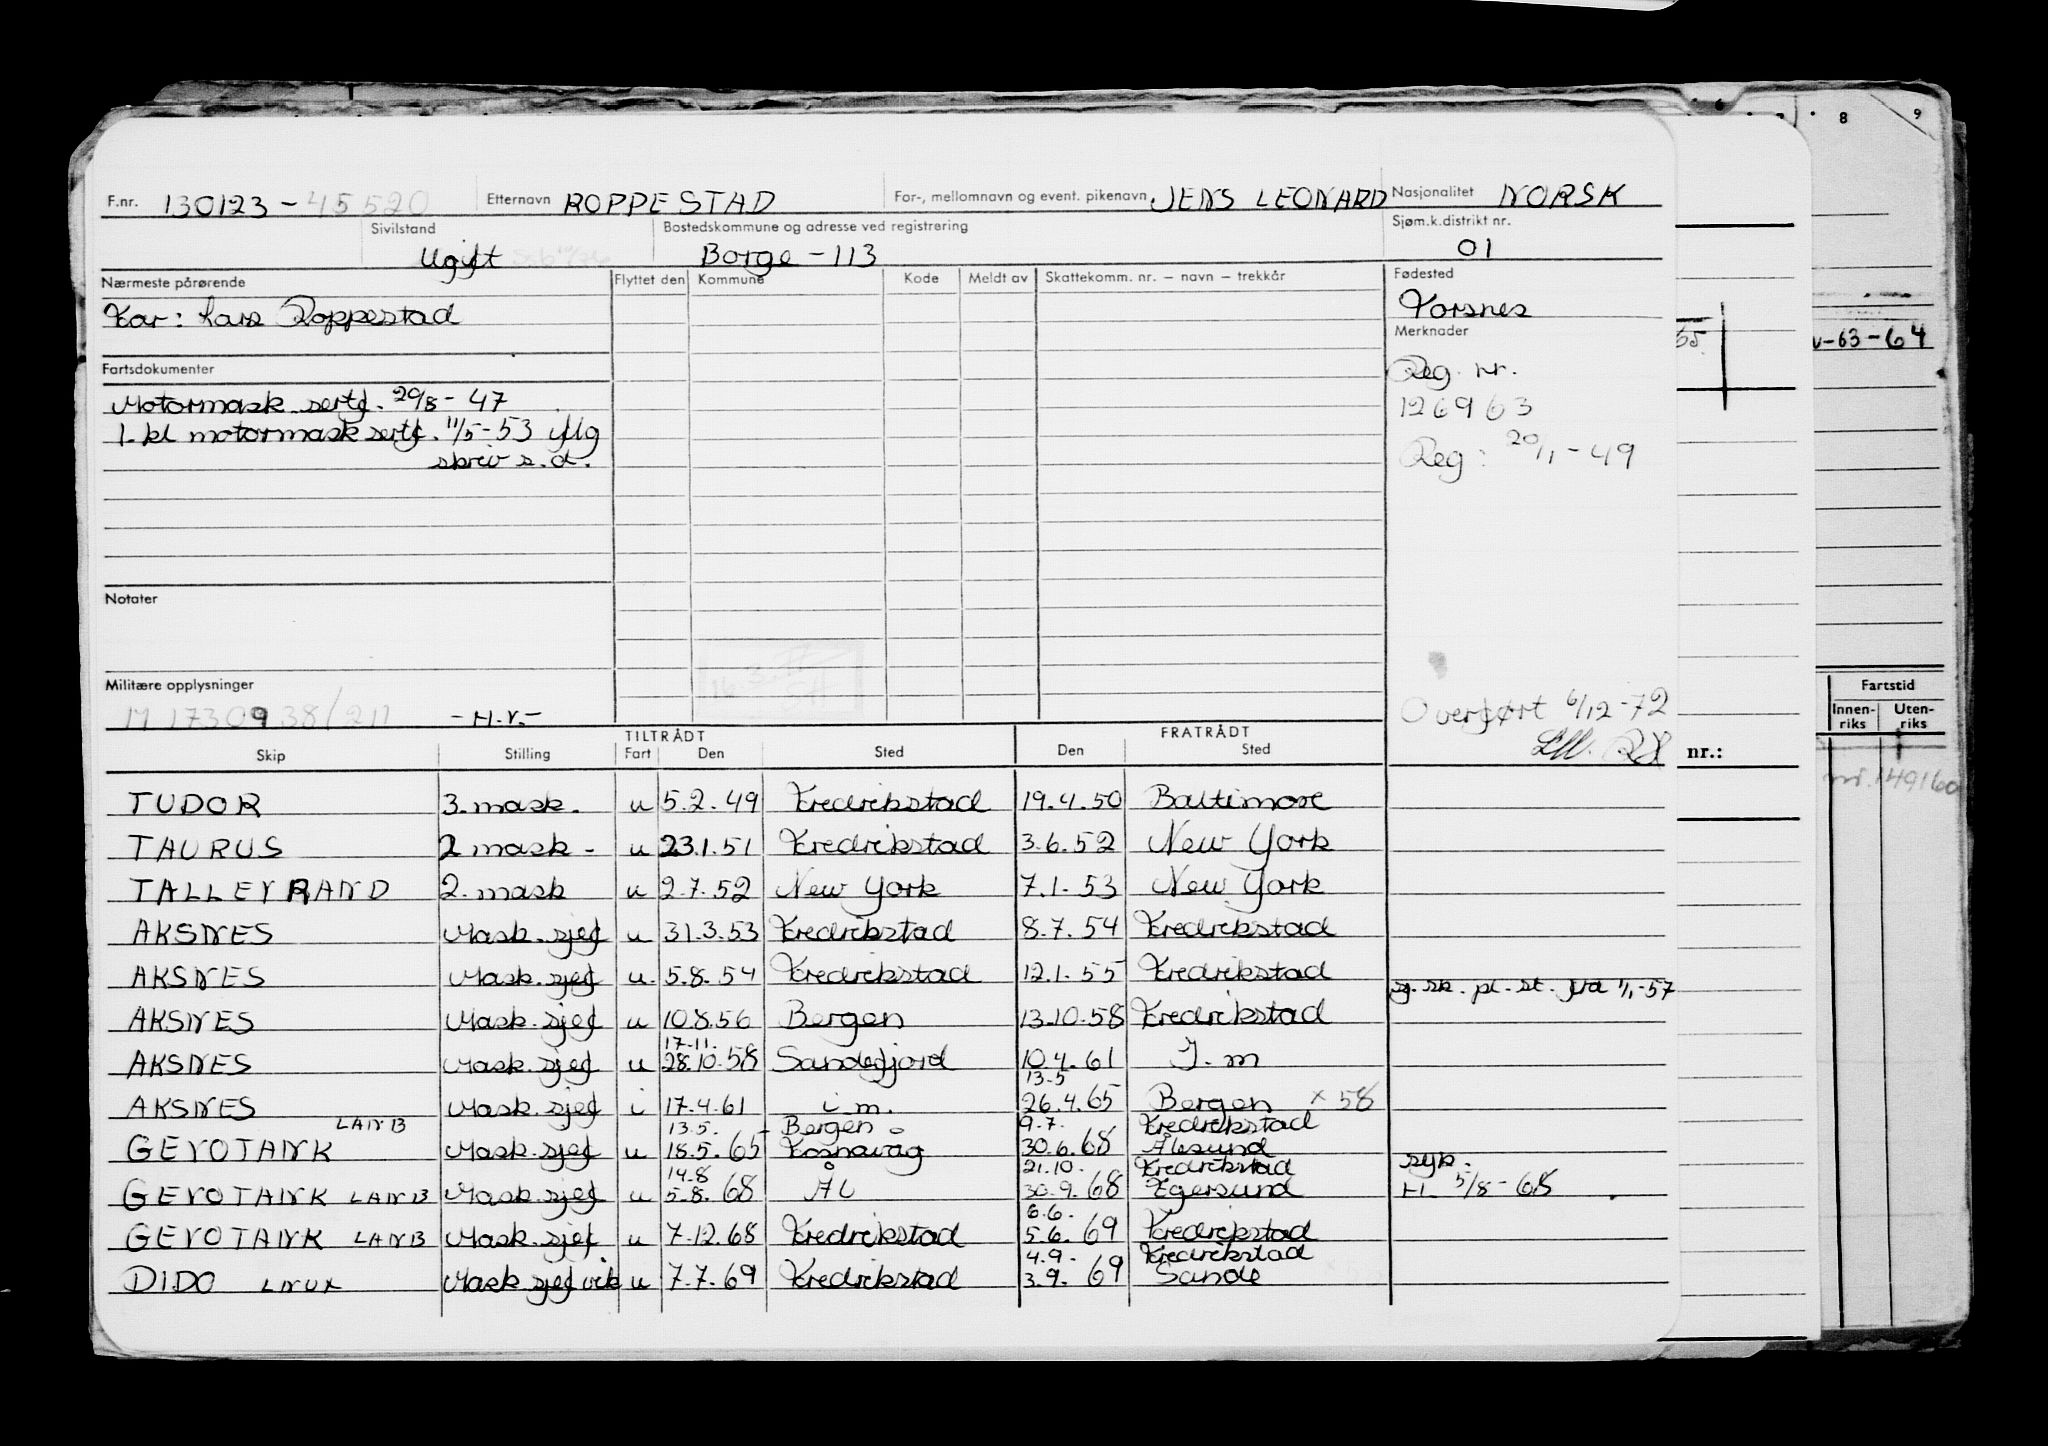 F.nr. 130123-45520 Etternavn ROPPESTAD For-, mellomnavn og event. pikenavn JENS LEONARD Nasjonalitet NORSK
Sivilstand Bostedskommune og adresse ved registrering Sjøm.k.distrikt nr.
Ugift Borge - 113 01
Nærmeste pårørende Flyttet den Kommune Kode Meldt av Skattekomm. nr. — navn — trekkår Fødested
Far: Lars Roppestad Torsnes
Merknader
Fartsdokumenter Reg. nr.
Motormask sertf. 20/8-47 126963
1. kl motormask sertf. 11/5-53 iflg Reg: 20/1-49
skriv s.d.
Notater
Militære opplysninger
M 17309 38/211 -H.V.- Overført 6/12-72
TILTRÅDT FRATRÅDT
Skip Stilling Fart Den Sted Den Sted nr.:
TUDOR 3. mask. u 5.2.49 Fredrikstad 19.4.50 Baltimore
TAURUS 2 mask - u 23.1.51 Fredrikstad 3.6.52 New York
TALLEYRAND 2. mask u 2.7.52 New York 7.1.53 New York
AKSNES Mask.sjef u 31.3.53 Fredrikstad 8.7.54 Fredrikstad
AKSNES Mask.sjef u. 5.8.54 Fredrikstad 12.1.55 Fredrikstad
sj. sk. pl. st. fra 1/1-57
AKSNES Mask.sjef u 10.8.56 Bergen 13.10.58 Fredrikstad
17.11.
AKSNES Mask.sjef u 28.10.58 Sandefjord 10.4.61 I.m
13.5
AKSNES Mask.sjef i 17.4.61 i.m. 26.4.65 Bergen x 58
LANB 13.5. - Bergen - 9.7. Fredrikstad
GEVOTANK Mask.sjef u 18.5.65 Fosnavåg 30.6.68 Ålesund
14.8 21.10. Fredrikstad syk.
GEVOTANK LANB Mask.sjef u 5.8.68 ÅL 30.9.68 Egersund H. 5/8-68
6.6.
GEVOTANK LANB Mask.sjef u 7.12.68 Fredrikstad 5.6.69 Fredrikstad
4.9. Fredrikstad
DIDO LNUX Mask.sjef vik u 7.7.69 Fredrikstad 3.9.69 Sande
6
8
9
65
-63-64
Fartstid
Innen-riks Uten-riks
nr. 149160